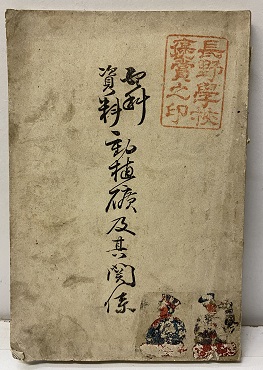 理科
資料
動植礦及其関係
長野學校
褒賞之印